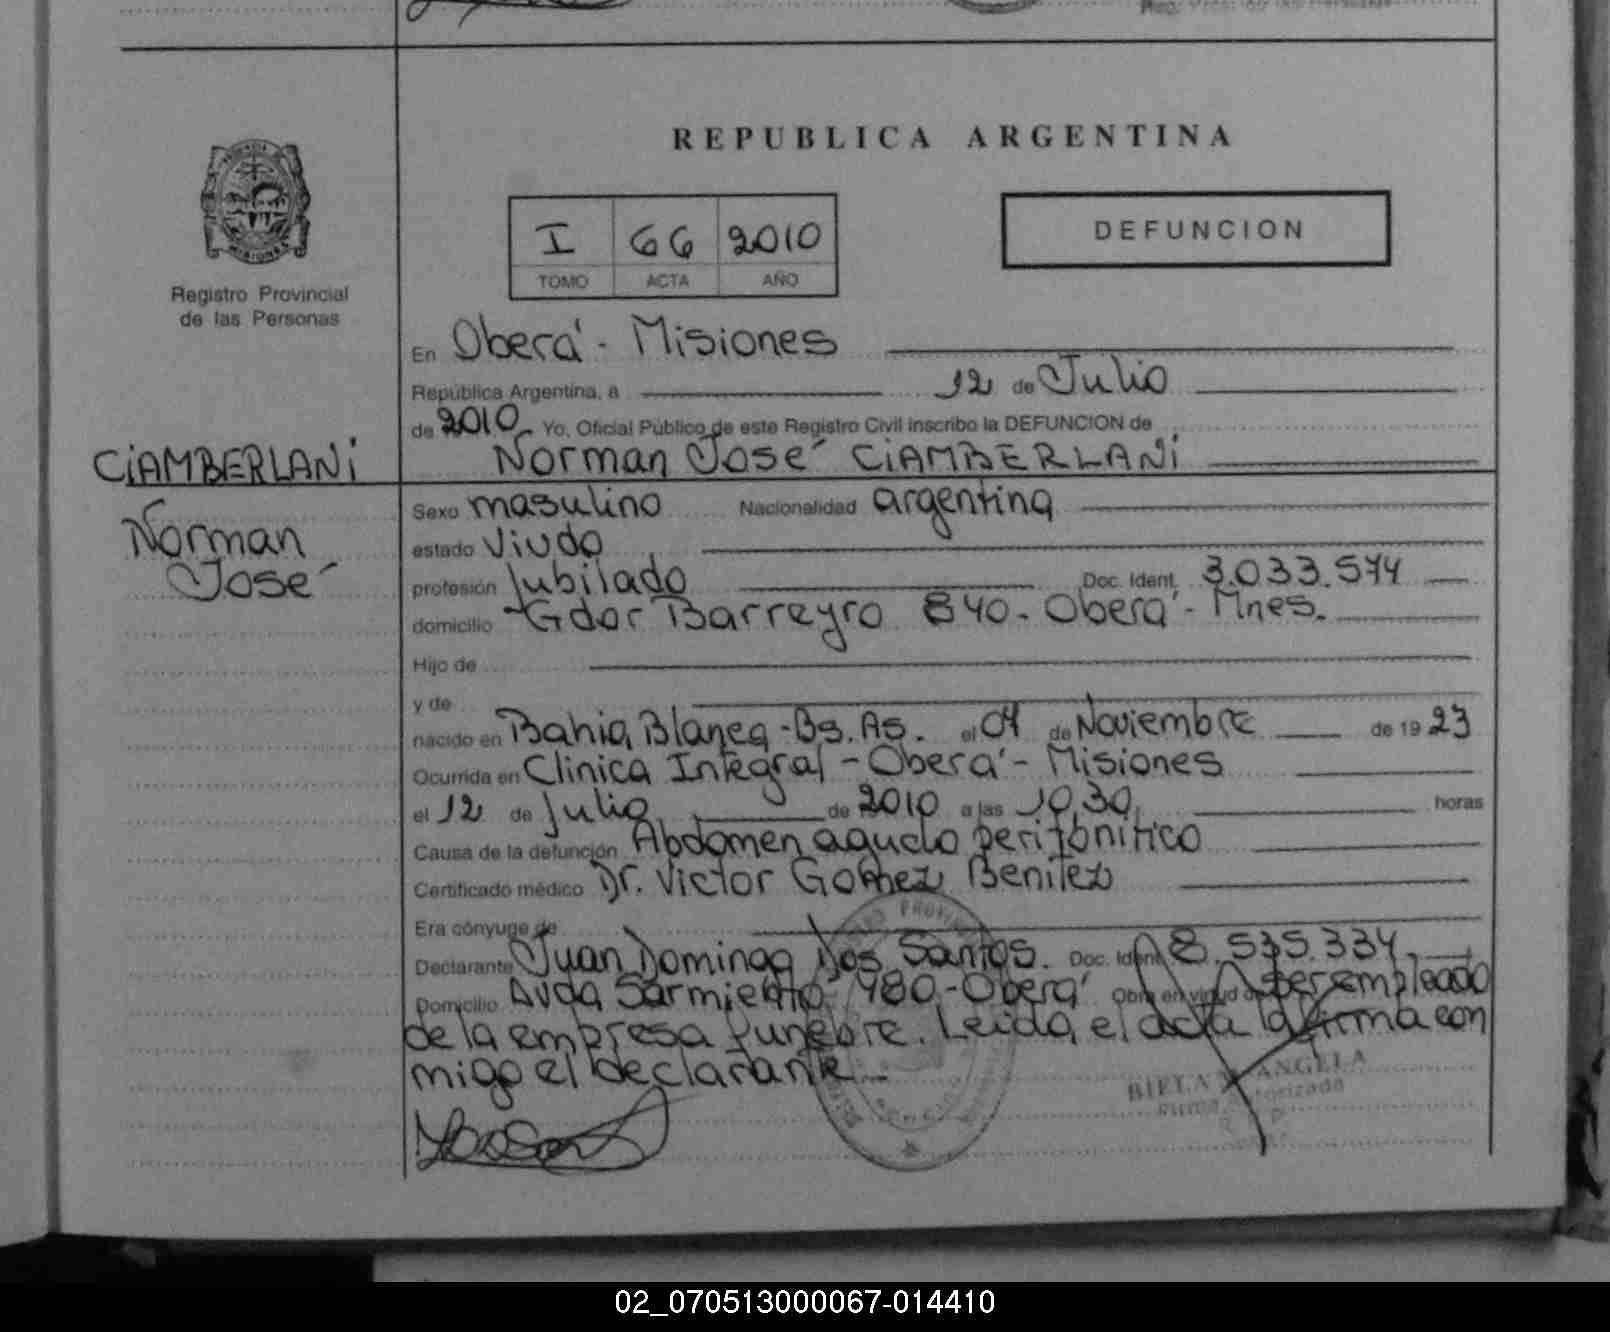 REPUBLICA ARGENTINA
I 66 2010
TOMO ACTA AÑO
DEFUNCION
Registro Provincial
de las Personas
En Oberá - Misiones
República Argentina, a 12 de Julio
de 2010 Yo, Oficial Público de este Registro Civil inscribo la DEFUNCION de
Norman José CIAMBERLANI
CIAMBERLANI
Norman
José
Sexo masulino Nacionalidad argentina
estado Viudo
profesión Jubilado Doc. Ident. 3.033.574
domicilio Gdor Barreyro 840 - Oberá - Mnes.
Hijo de
y de
nacido en Bahia Blanca - Bs. As. el 04 de Noviembre de 19 23
Ocurrida en Clinica Integral - Oberá - Misiones
el 12 de Julio de 2010 a las 10,30, horas
Causa de la defunción Abdomen agudo peritonitico
Certificado médico Dr. Victor Gomez Benitez
Era cónyuge de
Declarante Juan Domingo Dos Santos. Doc. Ident. 8.535.334
Domicilio Avda Sarmiento 980 - Oberá Obra en virtud de ser empleado
de la empresa funebre. Leida el acta la firma con
migo el declarante
ANGELA
02_070513000067-014410